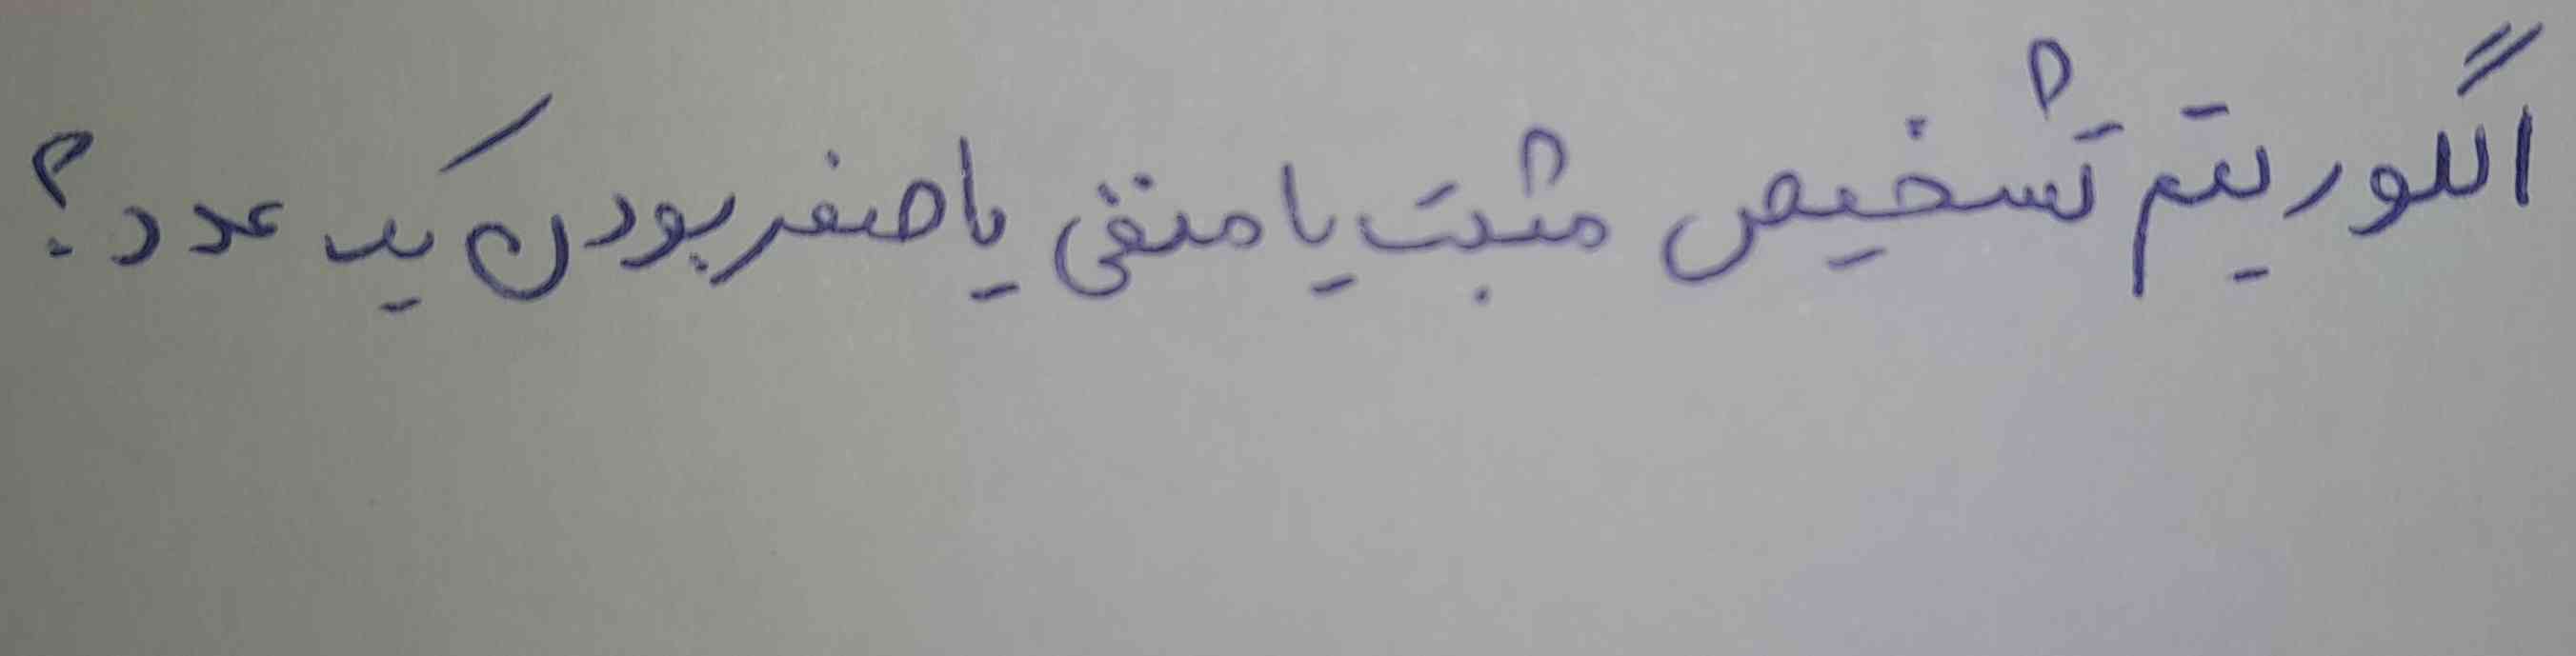 الگوریتم تشخیص مثبت یا منفی یا صفر بودن یک عدد؟